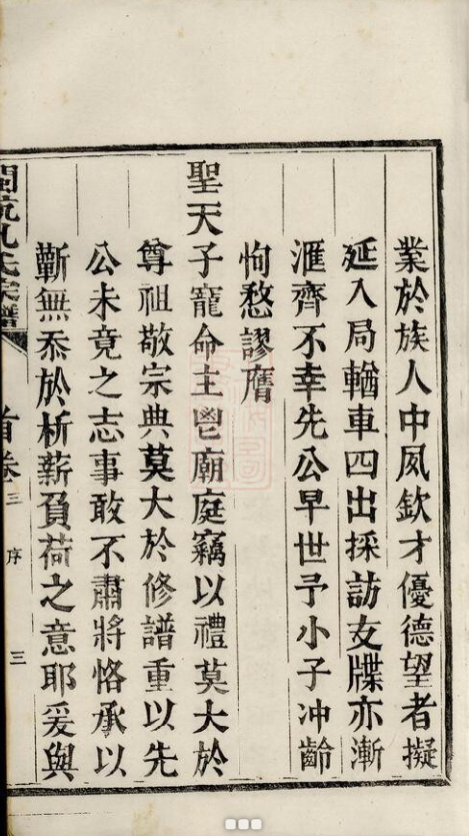 業於族人中夙欽才優德望者擬
延入局輶車四出採訪友牒亦漸
滙齊不幸先公早世予小子冲齡
恂愁謬膺
聖天子寵命主鬯廟庭竊以禮莫大於
尊祖敬宗典莫大於修譜重以先
公未竟之志事敢不肅將恪承以
蘄無忝於析薪負荷之意耶爰與
孔氏宗譜
首卷三 序 三